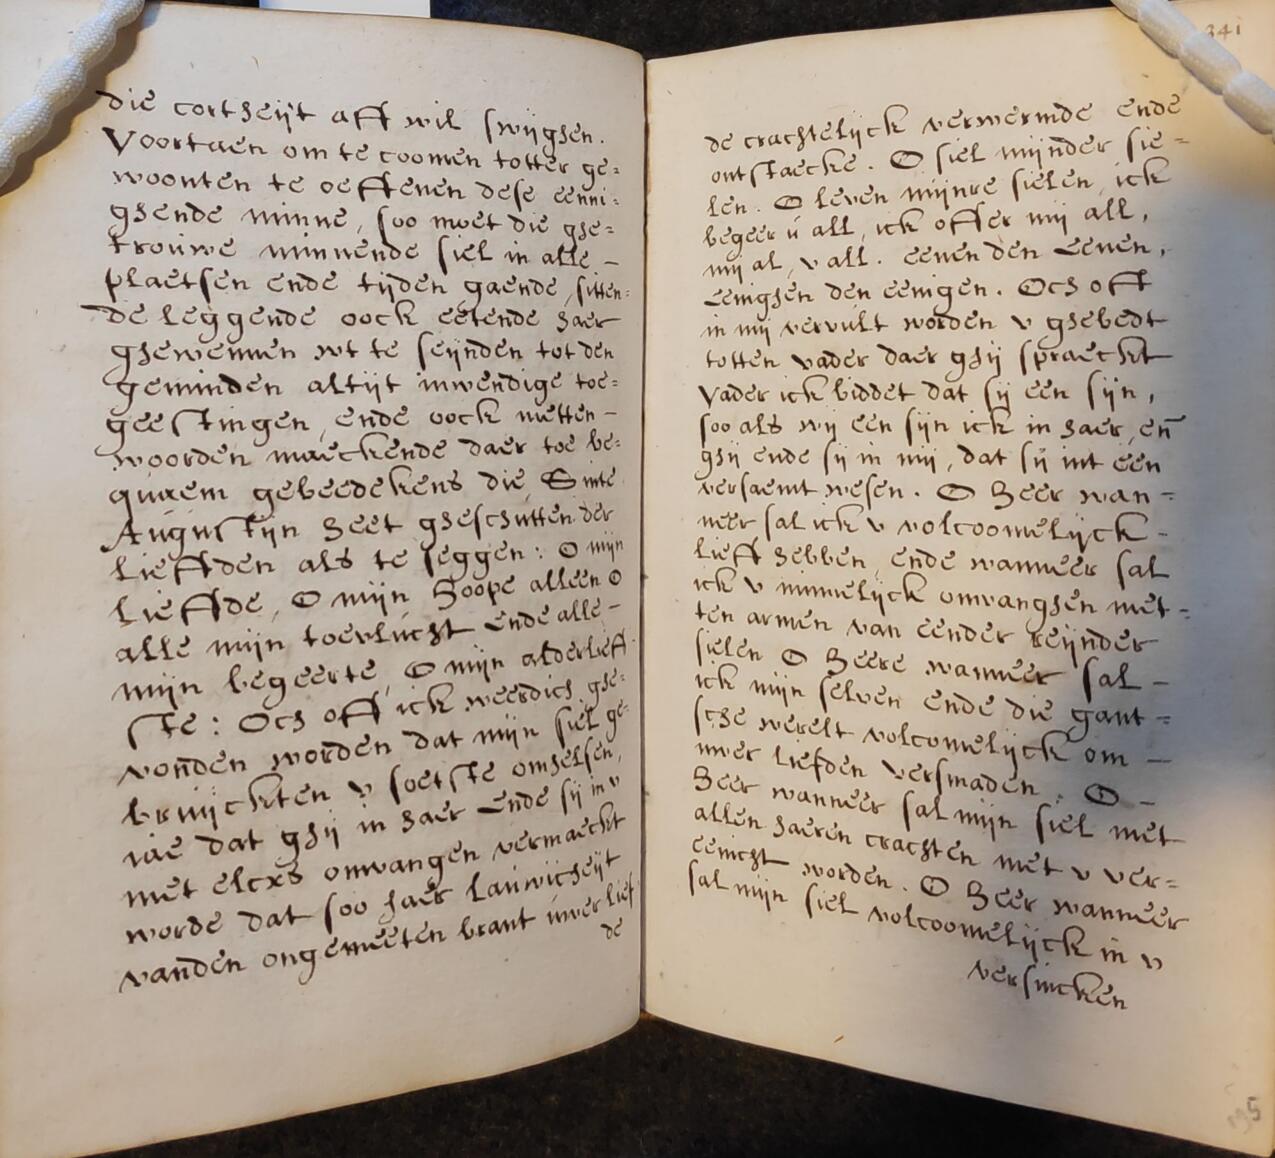 die cortheijt aff wil swijghen.
Voortaen om te coomen totter ge=
woonten te oeffenen dese eeni=
ghende minne, soo moet die ghe=
trouwe minnende siel in alle –
plaetsen ende tijden gaende, sitten=
de leggende oock eetende haer
ghewennen wt te seijnden tot den
geminden altijt inwendige toe=
geestingen, ende oock metten –
woorden maeckende daer toe be=
quaem gebeedekens die, Sinte
Augustijn heet gheschutten der
lieffden als te seggen: O mijn
lieffde, O mijn hoope alleen O
alle mijn toevlucht ende alle –
mijn begeerte, O mijn alderlieff
ste: Och off ick weerdich ghe=
vonden worden dat mijn siel ge=
bruijckten v soetste omhelsen,
die dat ghij in haer ende sij in v
met elcxs omvangen vermaeckt
worde dat soo haer lauwicheijt
vanden ongemeeten brant uwer lief
de
341
de crachtelijck verwermde ende
ontstaecke. O siel mijnder sie=
len. O leven mijnre sielen, ick
begeer ú all, ick offer mij all,
mij al, v all. eenen den eenen,
eenighen den eenigen. Och off
in mij vervult worden v ghebedt
totten vader daer ghij spraeckt
Vader ick biddet dat sij een sijn,
soo als wij een sijn ick in haer, en̄
ghij ende sij in mij, dat sij int een
versaemt wesen. O Heer wan=
neer sal ick v volcoomelijck –
lieff hebben, ende wanneer sal
ick v minnelijck omvanghen met=
ten armen van eender reijnder
sielen O Heere wanneer sal –
ick mijn selven ende die gant=
sche werelt volcomelijck om –
uwer liefden versmaden. O –
Heer wanneer sal mijn siel met
allen haeren crachten met v ver=
eenicht worden. O Heer wanneer
sal mijn siel volcoomelijck in v
versincken
195